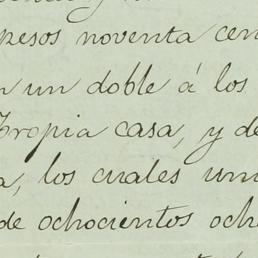 pesos noventa cen
un doble á los
Propia casa, y de
a, los cuales um
de ochocientos och